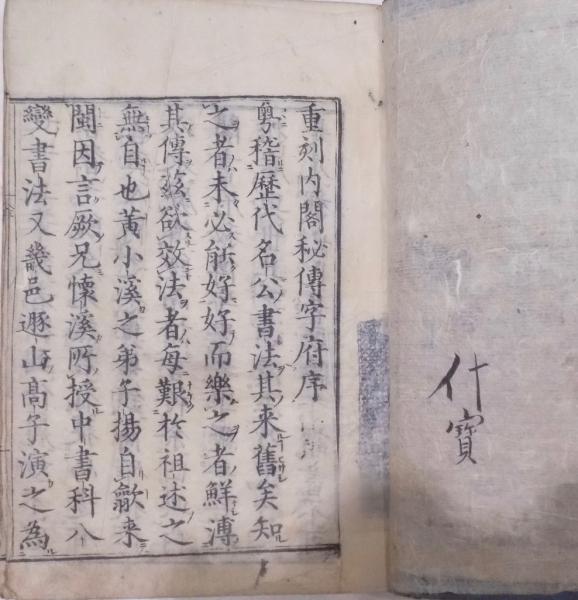 什寶
重刻内閣秘傳字府序
粤稽歷代名公書法其来舊矣知
之者未必能好好而樂之者鮮溥
其傳茲欲效法者每艱扵祖述之
無自也黃小溪之弟子揚自歙来
閩因言厥兄懷溪所授中書科八
變書法又畿邑遯山高子演之為